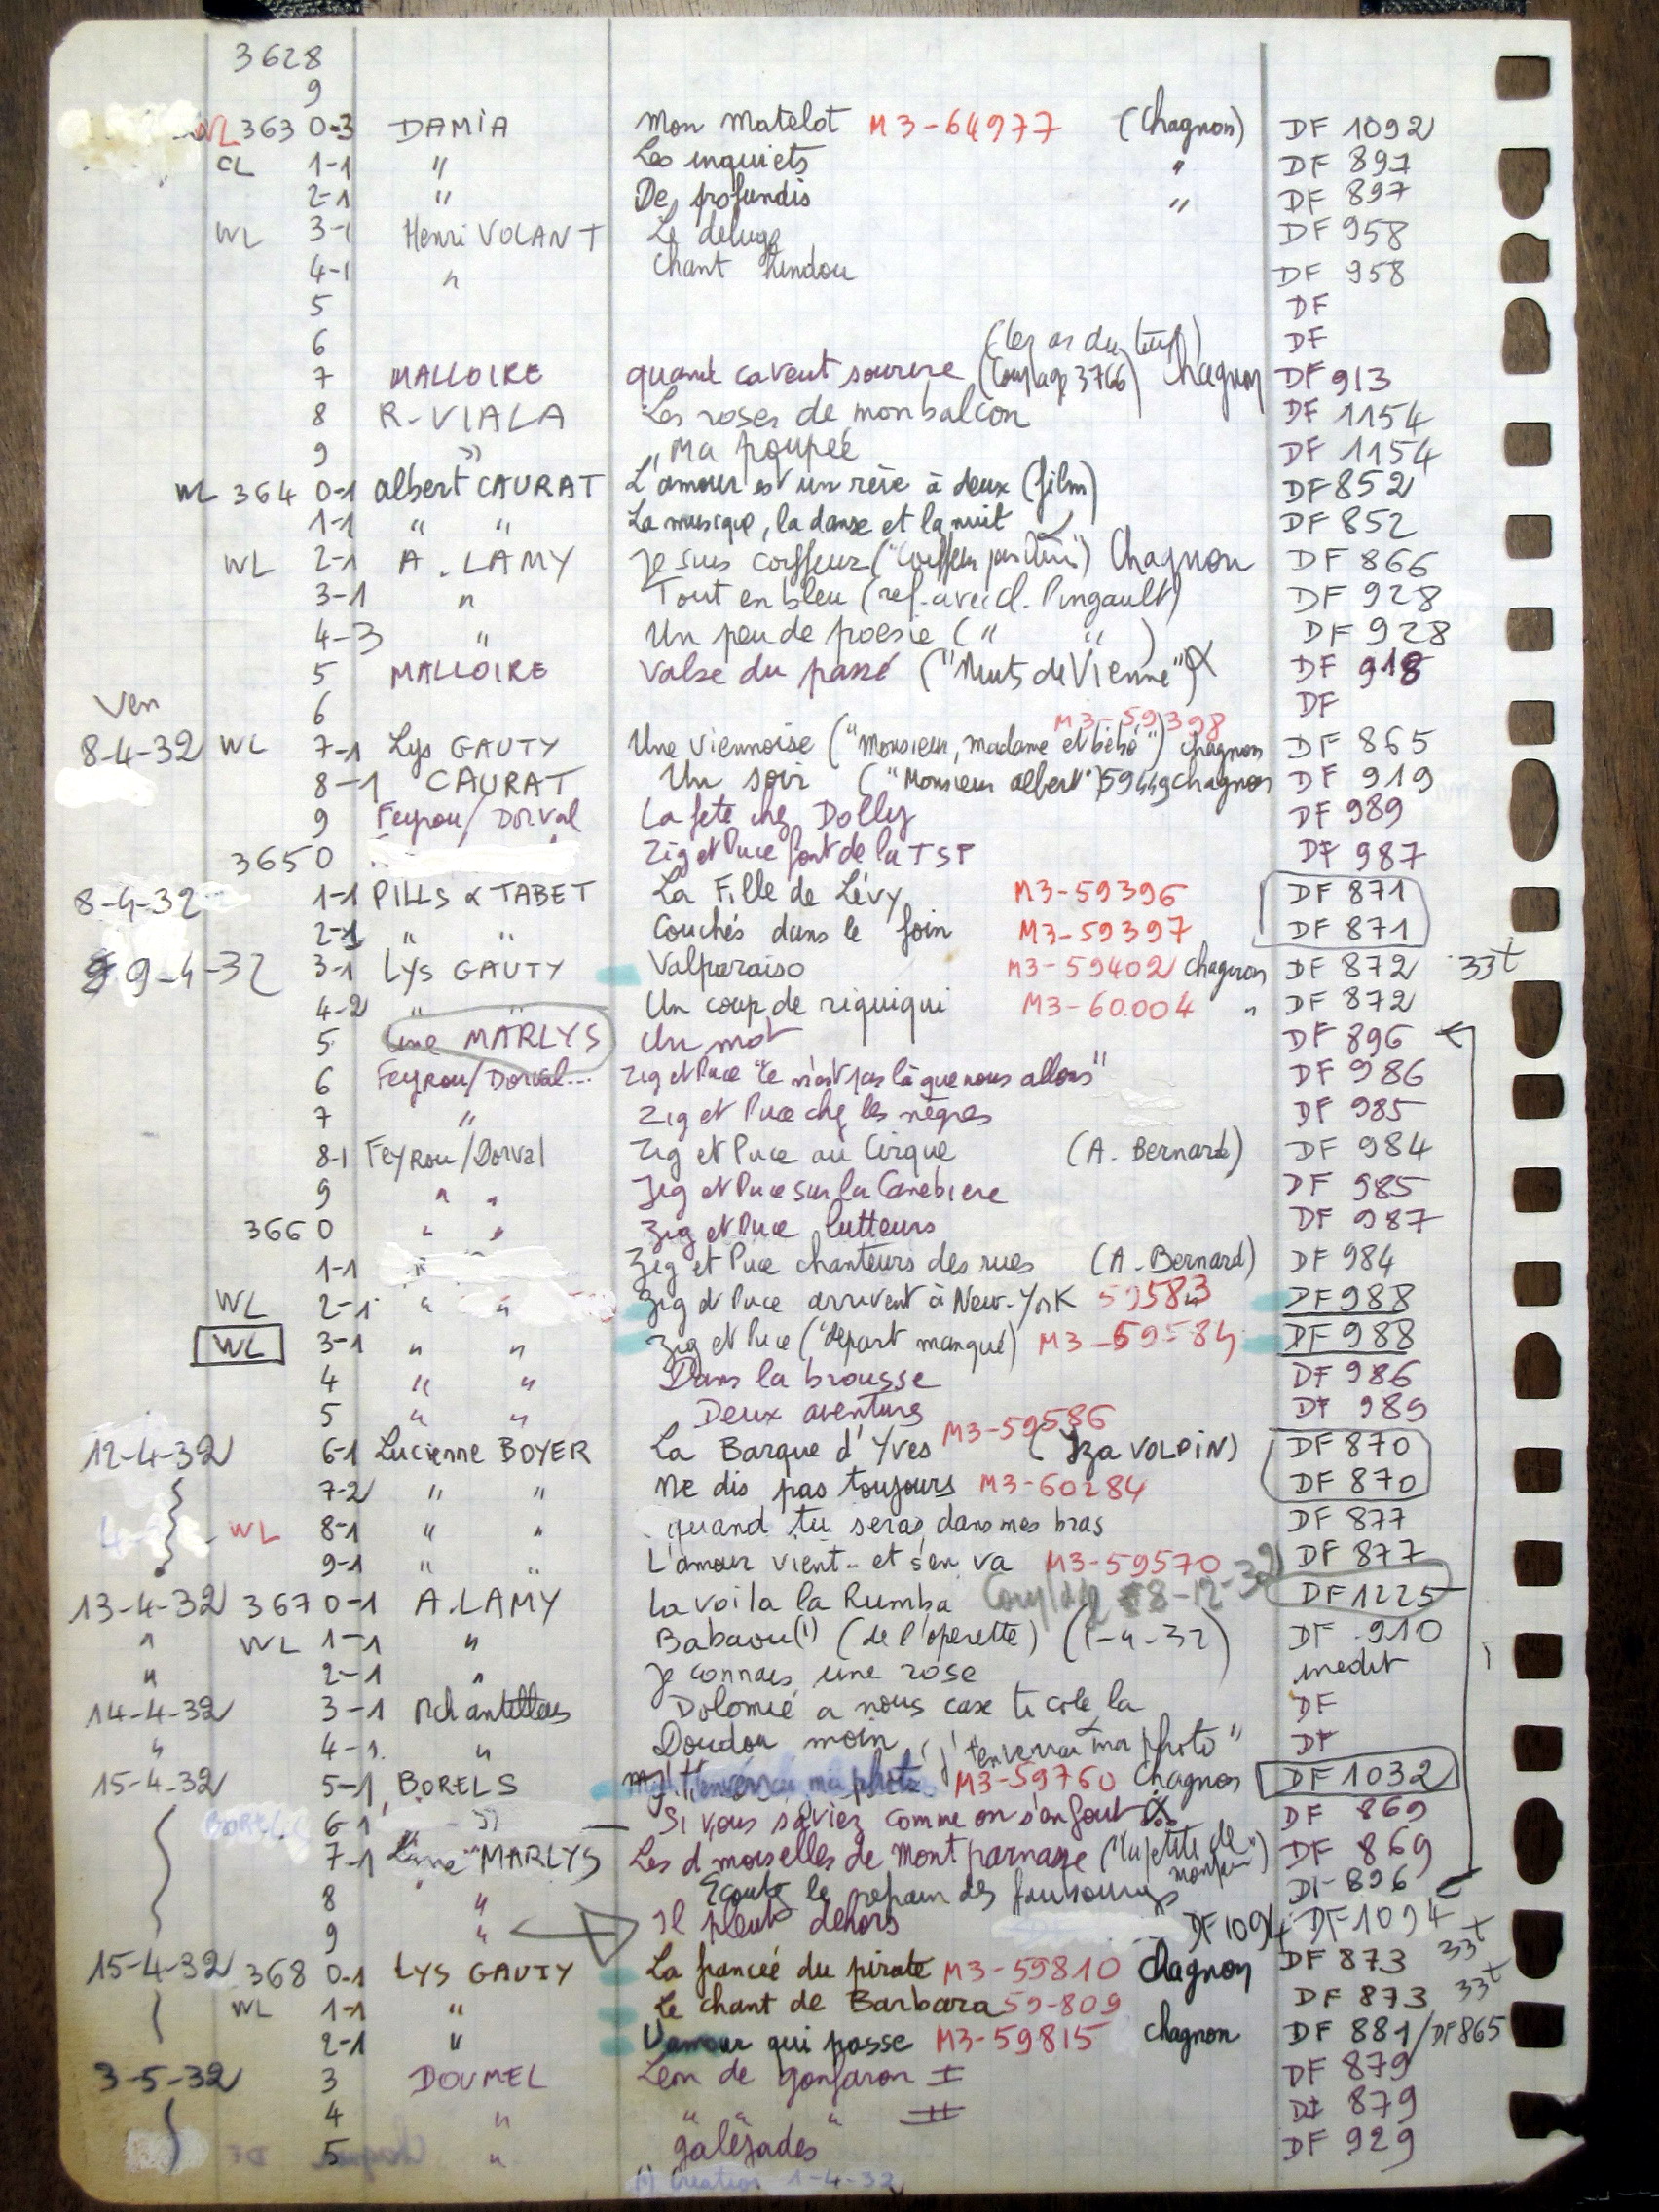 3628
9
WL 363 0-3 DAMIA Mon matelot M3-64977 (Chagnon) DF 1092
CL 1-1 " Les inquiets " DF 897
2-1 " De profundis " DF 897
WL 3-1 Henri VOLANT Le deluge DF 958
4-1 " Chant hindou DF 958
5 DF
6 (les as du turf) DF
7 MALLOIRE quand ca veut sourire (Couplage 3766) Chagnon DF 913
8 R-VIALA Les roses de mon balcon DF 1154
9 " Ma poupée DF 1154
WL 364 0-1 albert CAURAT L'amour est un rêve à deux (film) DF 852
1-1 " " La musique, la danse et la nuit DF 852
WL 2-1 A. LAMY Je suis coiffeur ("Coiffeur pour Dames") Chagnon DF 866
3-1 " Tout en bleu (ref. avec cl. Pingault) DF 928
4-3 " Un peu de poesie (" ") DF 928
5 MALLOIRE Valse du passé ("Nuits de Vienne") DF 918
Ven 6 DF
M3-59398
8-4-32 WL 7-1 Lys GAUTY Une viennoise ("Monsieur, madame et bébé") chagnon DF 865
8-1 CAURAT Un soir ("Monsieur albert") 59449 chagnon DF 919
9 Feyrou/Dorval La fete chez Dolly DF 989
3650 Zig et Puce font de la TSF DF 987
8-4-32 1-1 PILLS & TABET La Fille de Lévy M3-59396 DF 871
2-1 " " Couchés dans le foin M3-59397 DF 871
9-4-32 3-1 LYS GAUTY Valparaiso M3-59402 chagnon DF 872 33t
4-2 " " Un coup de riquiqui M3-60.004 " DF 872
5 Line MARLYS Un mot DF 896
6 Feyrou/Dorval... Zig et Puce "ce n'est pas là que nous allons" DF 986
7 " Zig et Puce chez les nègres DF 985
8-1 Feyrou/Dorval Zig et Puce au Cirque (A. Bernard) DF 984
9 " " Zig et Puce sur la Canebiere DF 985
3660 " " Zig et Puce lutteurs DF 987
1-1 " Zig et Puce chanteurs des rues (A. Bernard) DF 984
WL 2-1 " " Zig et Puce arrivent à New-York 59583 DF 988
WL 3-1 " " Zig et Puce ("départ manqué) M3-59584 DF 988
4 " " Dans la brousse DF 986
5 " " Deux aventures DF 989
12-4-32 6-1 Lucienne BOYER La Barque d'Yves M3-59586 (Iza VOLPIN) DF 870
7-2 " " Ne dis pas toujours M3-60284 DF 870
WL 8-1 " " quand tu seras dans mes bras DF 877
9-1 " " L'amour vient.. et s'en va M3-59570 DF 877
13-4-32 367 0-1 A.LAMY La voila la Rumba Couplage 8-12-32 DF 1225
" WL 1-1 " Babaou(1) (de l'operette) (1-4-32) DF 910
" 2-1 " Je connais une rose inedit
14-4-32 3-1 Dolomié a nous case ti cole la DF
" 4-1 " Doudou moin DF
"j't'enverrai ma photo"
15-4-32 5-1 BORELS M3-59760 Chagnon DF 1032
6-1 " Si vous saviez comme on s'en fout DF 869
7-1 Line MARLYS Les d'moiselles de Montparnasse ("la petite de monparn") DF 869
8 " Ecoute le refrain des faubourgs DF 896
9 " Il pleut dehors DF 1094 DF 1094
15-4-32 368 0-1 LYS GAUTY La fiancée du pirate M3-59810 Chagnon DF 873 33t
WL 1-1 " Le chant de Barbara 59-809 DF 873 33t
2-1 " L'amour qui passe M3-59815 chagnon DF 881/DF865
3-5-32 3 DOUMEL Leon de Gonfaron I DF 879
4 " " " " II DF 879
5 " galejades DF 929
(1) Creation 1-4-32